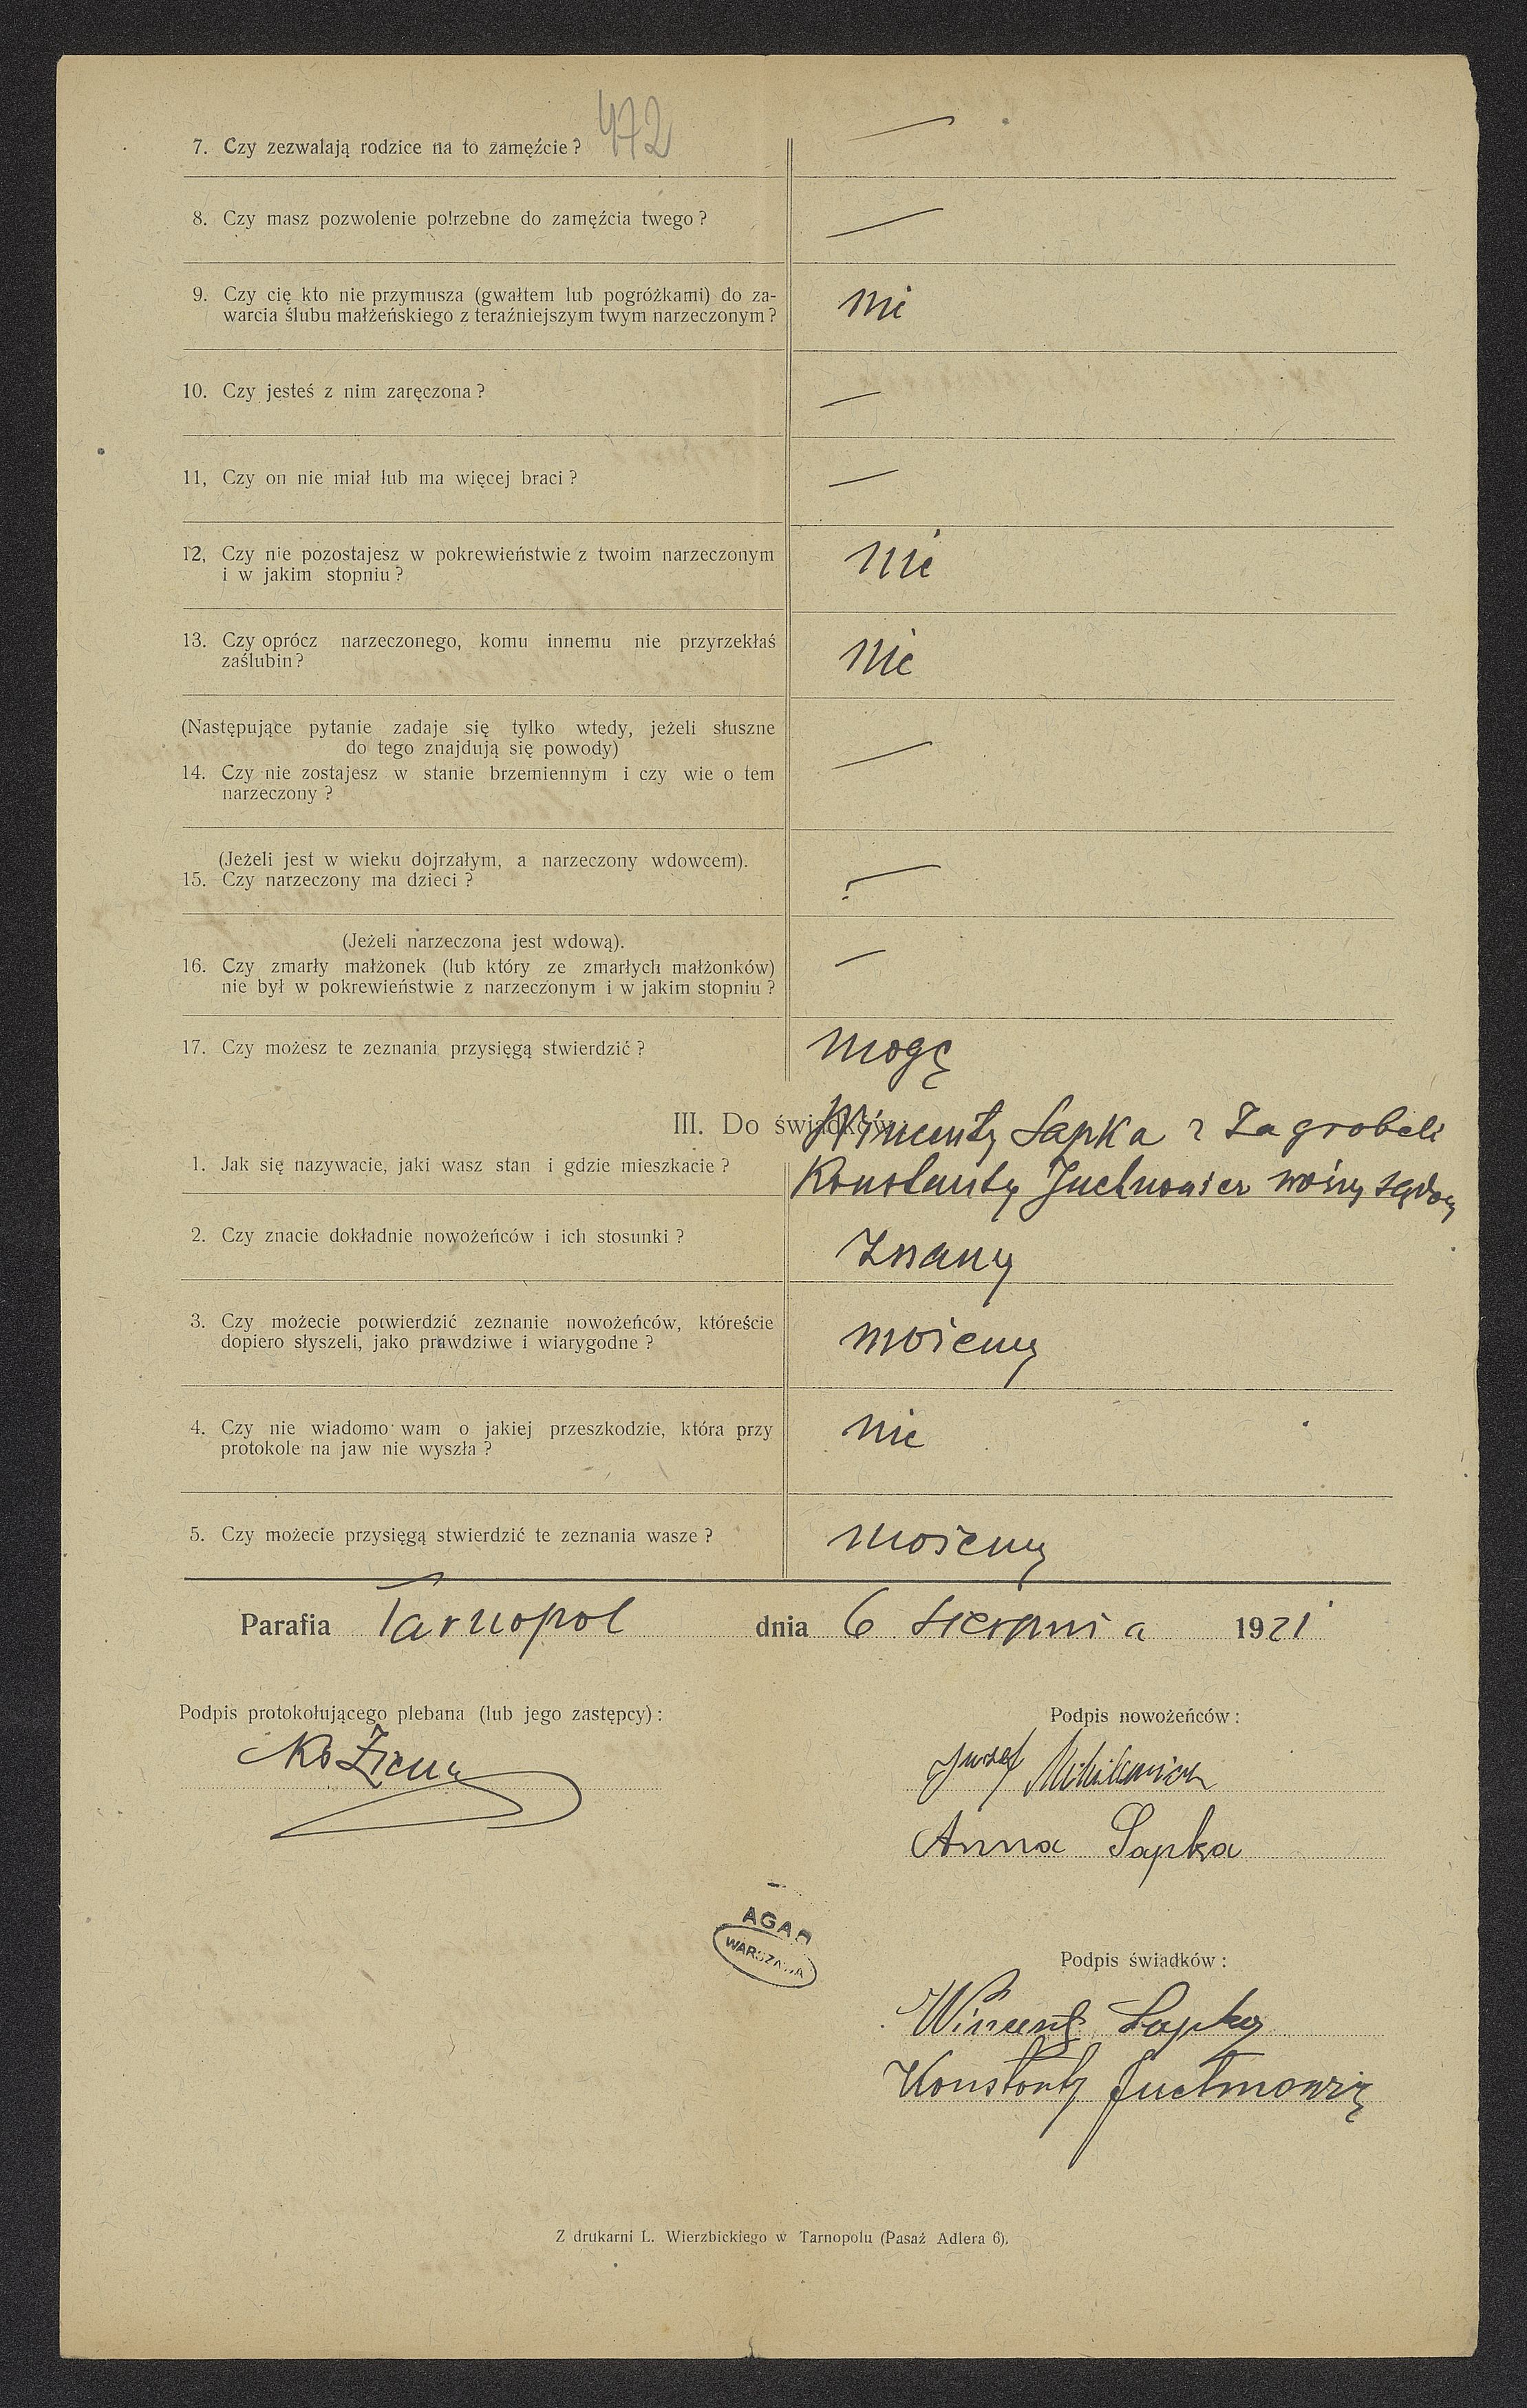 472
7. Czy zezwalają rodzice na to zamęźcie? —
8. Czy masz pozwolenie potrzebne do zamęźcia twego? —
9. Czy cię kto nie przymusza (gwałtem lub pogróżkami) do za-
warcia ślubu małżeńskiego z teraźniejszym twym narzeczonym? nie
10. Czy jesteś z nim zaręczona? —
11, Czy on nie miał lub ma więcej braci? —
12, Czy nie pozostajesz w pokrewieństwie z twoim narzeczonym
i w jakim stopniu? nie
13. Czy oprócz narzeczonego, komu innemu nie przyrzekłaś
zaślubin? nie
(Następujące pytanie zadaje się tylko wtedy, jeżeli słuszne
do tego znajdują się powody)
14. Czy nie zostajesz w stanie brzemiennym i czy wie o tem
narzeczony? —
(Jeżeli jest w wieku dojrzałym, a narzeczony wdowcem).
15. Czy narzeczony ma dzieci? —
(Jeżeli narzeczona jest wdową).
16. Czy zmarły małżonek (lub który ze zmarłych małżonków)
nie był w pokrewieństwie z narzeczonym i w jakim stopniu? —
17. Czy możesz te zeznania przysięgą stwierdzić? mogę
III. Do świadków
Wincenty Sapka z Zagrobeli
1. Jak się nazywacie, jaki wasz stan i gdzie mieszkacie?
Konstanty Juchnowicz woźny sądowy
2. Czy znacie dokładnie nowożeńców i ich stosunki? Znamy
3. Czy możecie potwierdzić zeznanie nowożeńców, któreście
dopiero słyszeli, jako prawdziwe i wiarygodne? możemy
4. Czy nie wiadomo wam o jakiej przeszkodzie, która przy
protokole na jaw nie wyszła? nie
5. Czy możecie przysięgą stwierdzić te zeznania wasze? możemy
Parafia Tarnopol dnia 6 Sierpnia 1921
Podpis protokołującego plebana (lub jego zastępcy):
Podpis nowożeńców:
Józef
Anna Sapka
AGAD
WARSZAWA
Podpis świadków:
Wincenty Sapka
Konstanty Juchnowicz
Z drukarni L. Wierzbickiego w Tarnopolu (Pasaż Adlera 6).